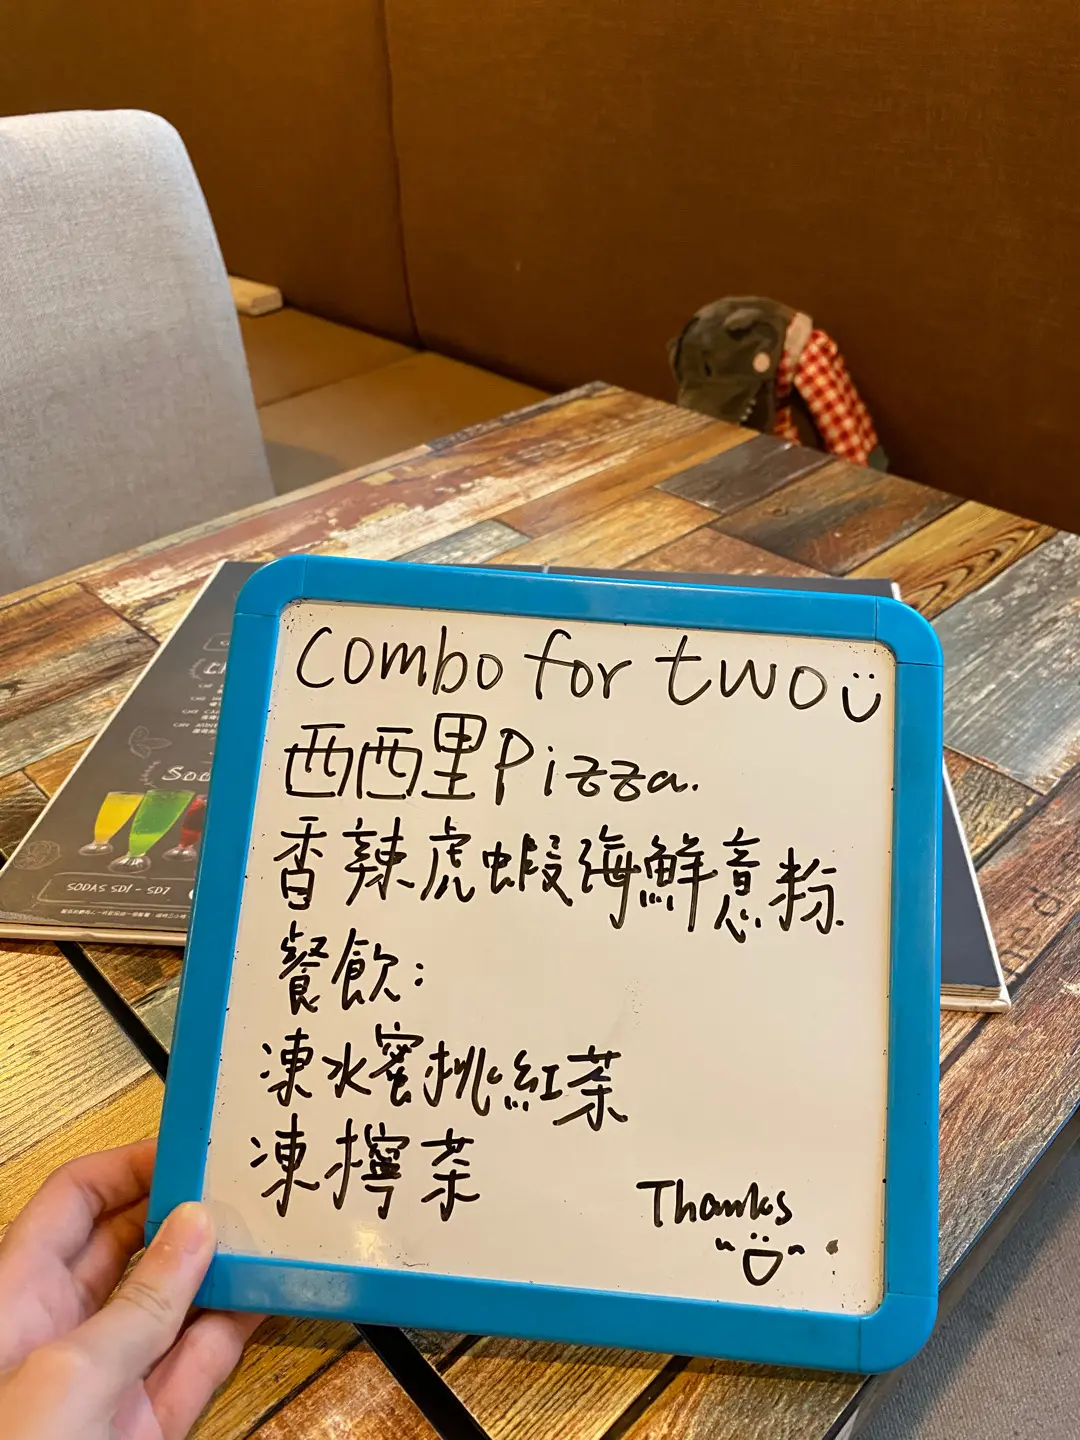 Combo for two
西西里Pizza.
香辣虎蝦海鮮意粉
餐飲:
凍水蜜桃紅茶
凍檸茶
Thanks
SODAS SD1 - SD7